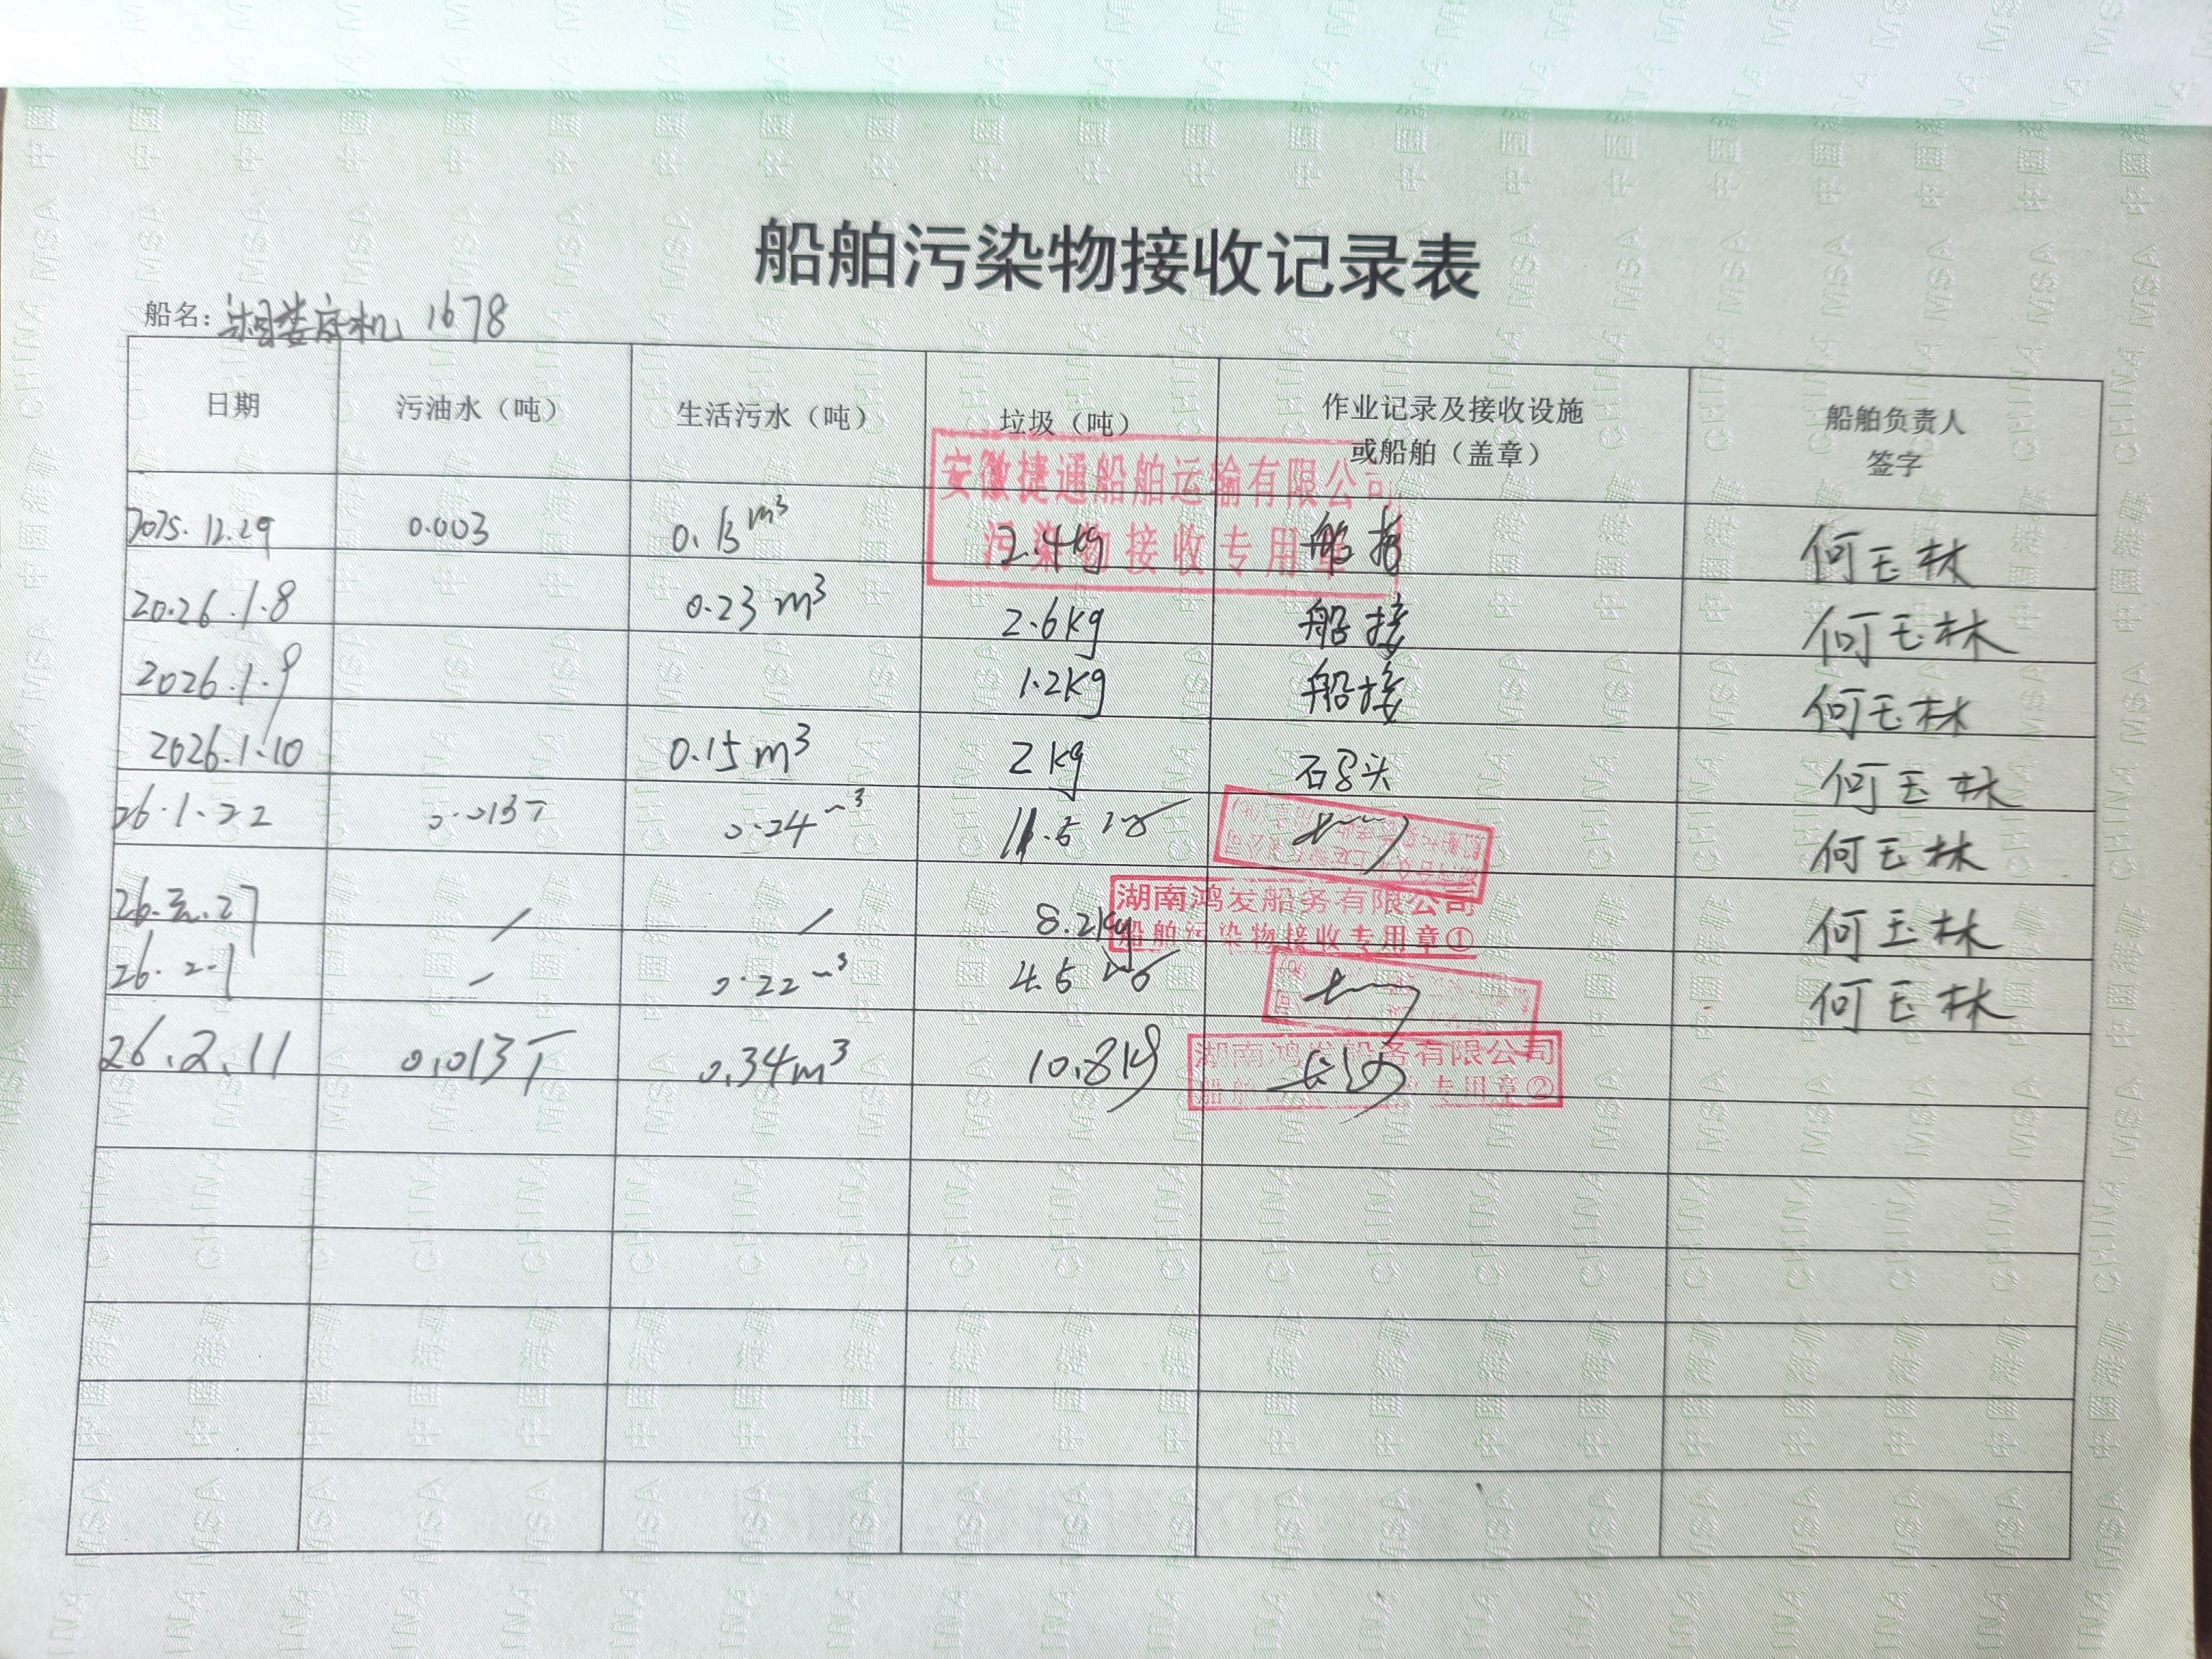 船舶污染物接收记录表
船名：湘娄底机 1678
日期 污油水（吨） 生活污水（吨） 垃圾（吨） 作业记录及接收设施 船舶负责人
或船舶（盖章） 签字
安徽捷通船舶运输有限公司
污染物接收专用章
2025.12.29 0.003 0.13m³ 2.4kg 船接 何玉林
2026.1.8 0.23m³ 2.6kg 船接 何玉林
2026.1.9 1.2kg 船接 何玉林
2026.1.10 0.15m³ 2kg 石码头 何玉林
26.1.22 0.013T 0.24m³ 11.5 何玉林
湖南鸿发船务有限公司
船舶污染物接收专用章①
26. .27 / / 8.2kg 何玉林
26.2.1 - 0.22m³ 4.5 何玉林
湖南鸿发船务有限公司
船舶 专用章②
26.2.11 0.013T 0.34m³ 10.8kg 长沙
中国海事 CHINA MSA